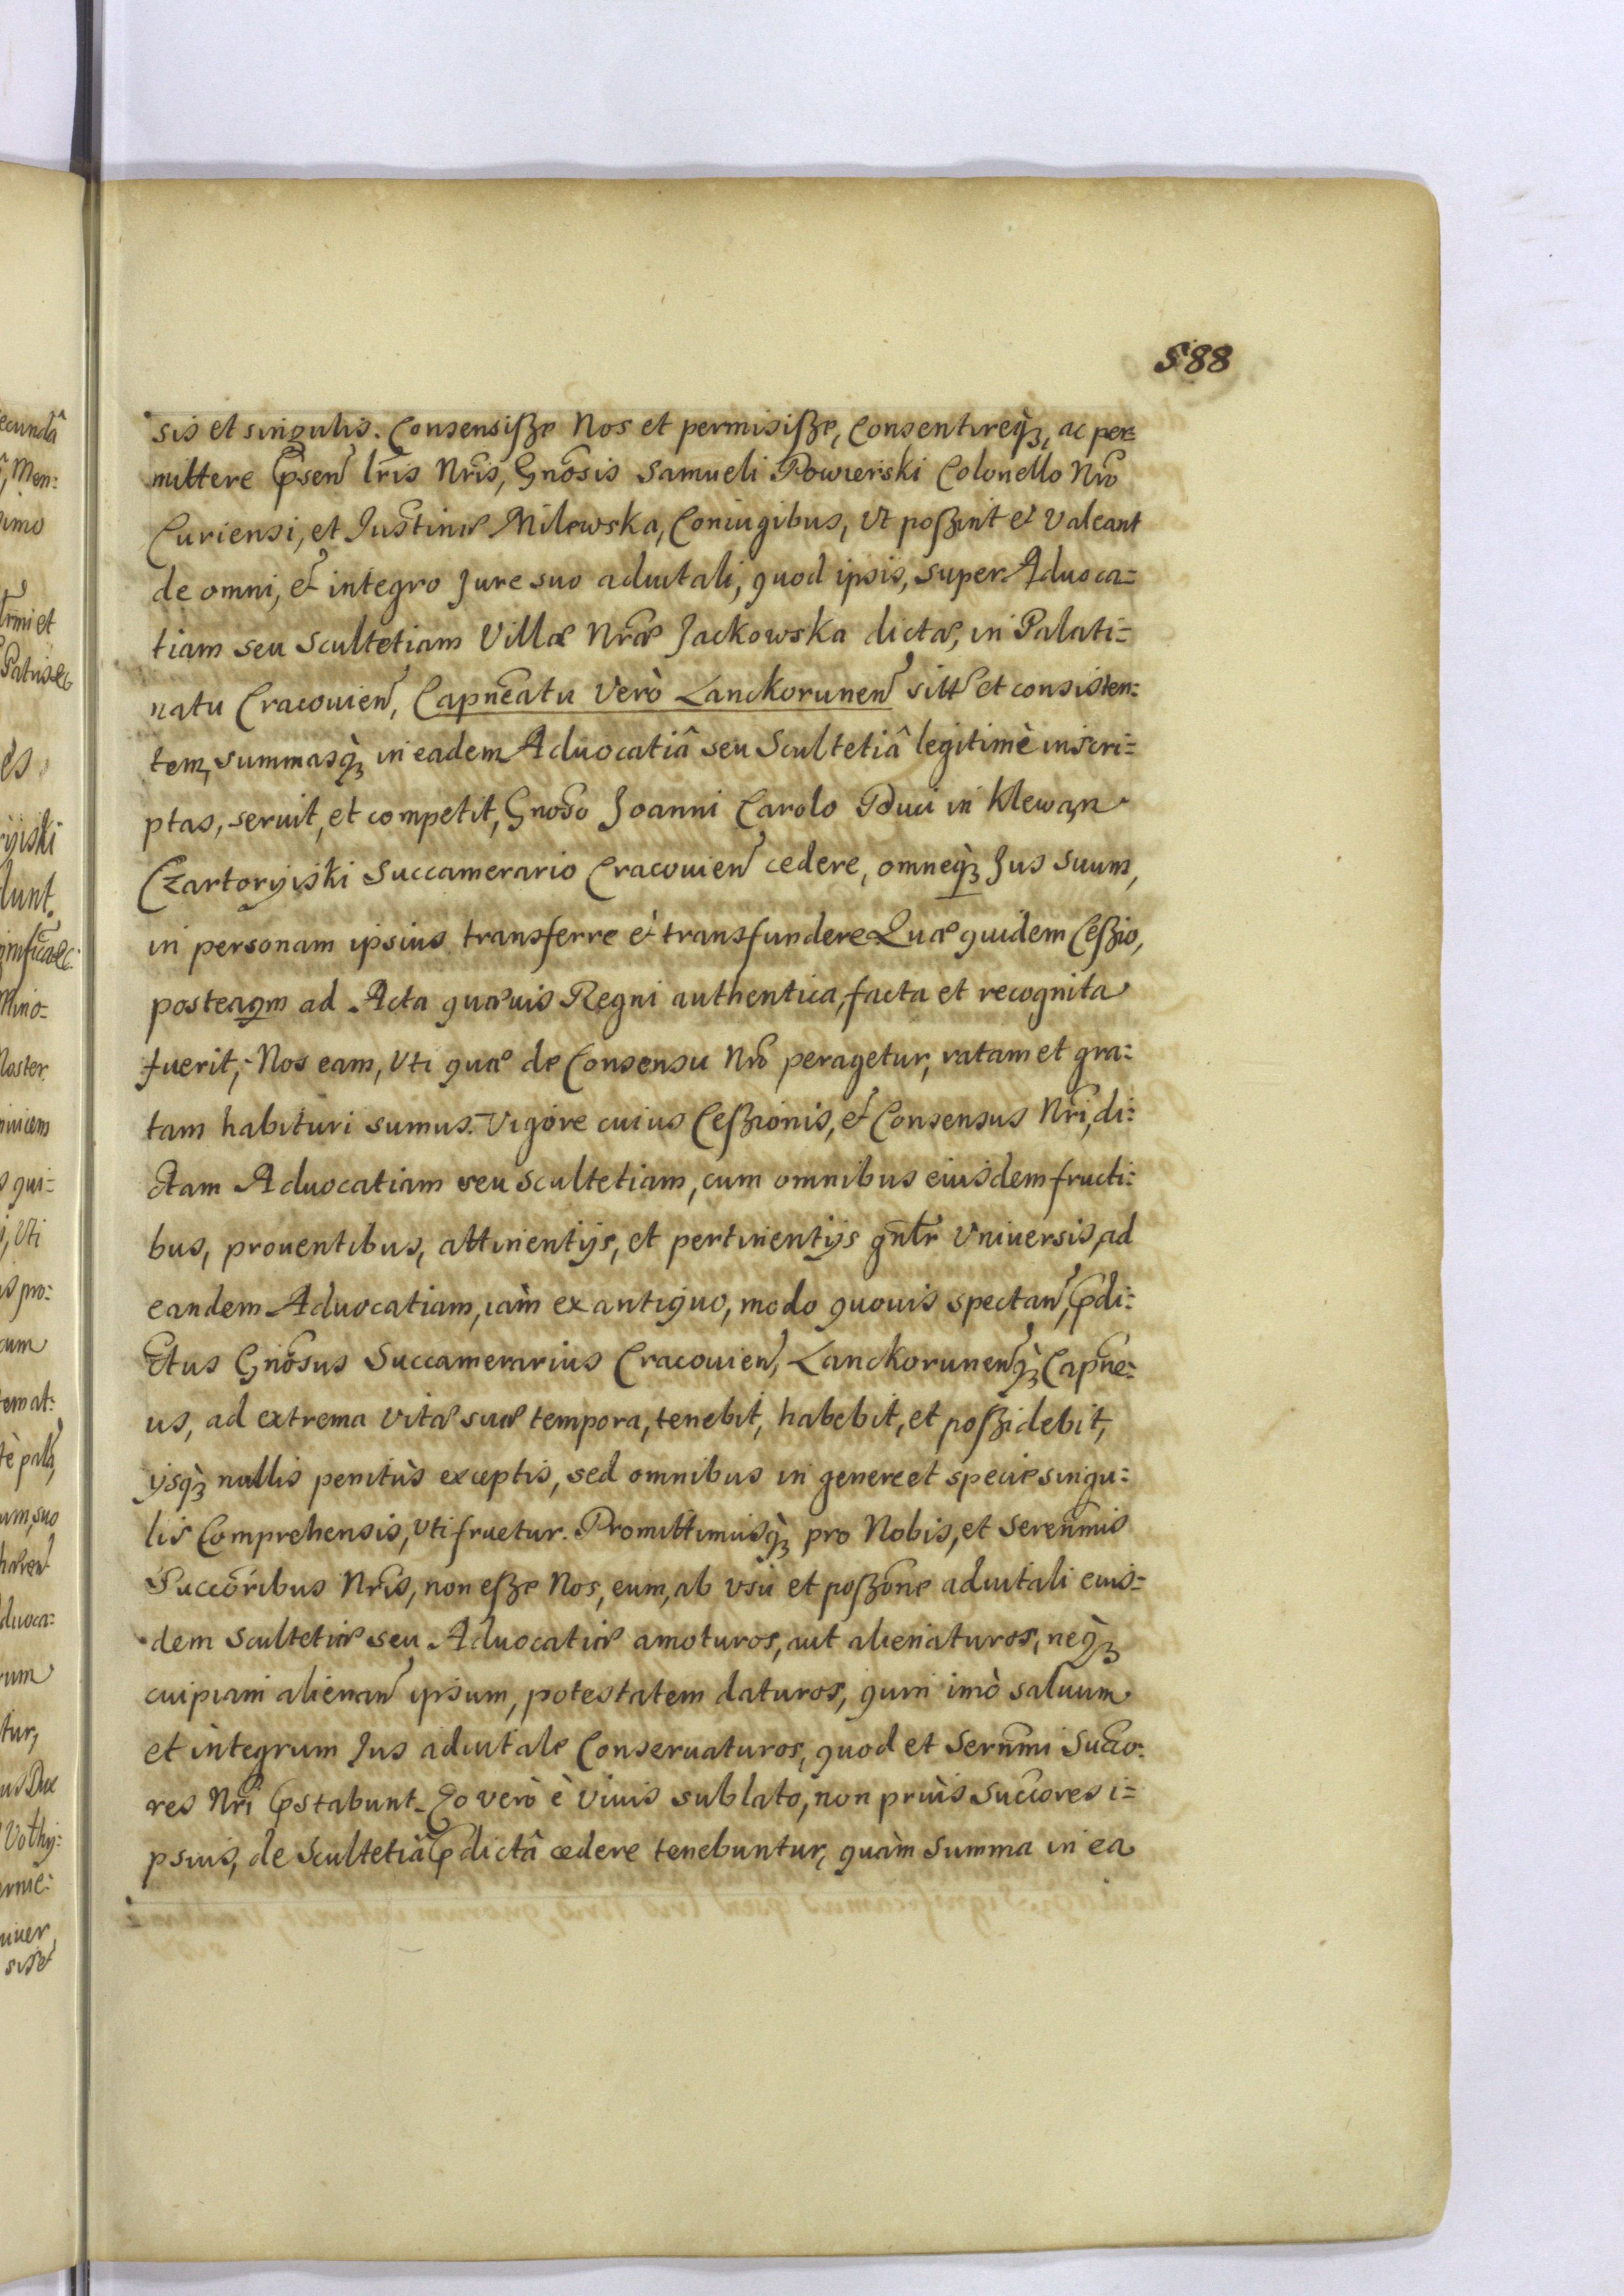 588
sis et singulis. Consensiße Nos et permisiße, Consentireq̀ꝫ, ac per=
mittere p̃sen̄ lr̃is Nr̃is, Gn̄osis Samueli Powierski Colonello Nr̃o
Curiensi, et Justinæ Milewska, Coniugibus, Vt poßint et Valeant
de omni, et integro Jure suo aduitali, quod ipsis, super Aduoca=
tiam seu Scultetiam Villæ Nr̃æ Jackowska dictæ, in Palati=
natu Cracouien̄, Capn̄eatu Verò Lanckorunen̄ sitt̄ et consisten=
tem, summasq̀ꝫ in eadem Aduocatiâ seu Scultetiâ legitimè inscri=
ptas, seruit, et competit, Gnõso Joanni Carolo Duci in Klewan
Czartoryiski Succamerario Cracouien̄ cedere, omneq̀ꝫ Jus suum,
in personam ipsius transferre et transfundere Quæ quidem Ceßio,
posteaqm ad Acta quæuis Regni authentica, facta et recognita
fuerit, Nos eam, Vti quæ de Consensu Nr̃o peragetur, ratam et gra=
tam habituri sumus. Vigore cuius Ceßionis, et Consensus Nr̃i, di=
ctam Aduocatiam seu Scultetiam, cum omnibus eiusdem fructi=
bus, prouentibus, attinentijs, et pertinentijs gn̄lr̄ Vniuersis, ad
eandem Aduocatiam, iàm ex antiquo, modo quouis spectan̄, p̃di=
ctus Gnõsus Succamerarius Cracouien̄, Lanckorunen̄q̀ꝫ Capn̄e=
us, ad extrema vitæ suæ tempora, tenebit, habebit, et poßidebit,
ijsq̀ꝫ nullis penitùs exceptis, sed omnibus in genere et specie singu=
lis Comprehensis, Vti fruetur. Promittimusq̀ꝫ pro Nobis, et Seren̄mis
Succõribus Nr̃is, non eße Nos, eum, ab vsu et poßõne aduitali eius=
dem Scultetiæ seu Aduocatiæ amoturos, aut alienaturos, neq̀ꝫ
cuipiam alienan̄ ipsum, potestatem daturos, quin imò saluum
et integrum Jus aduitale Conseruaturos, quod et Sern̄mi Succo=
res Nr̃i p̃stabunt. Eo verò è Viuis sublato, non priùs Succores i=
psius, de Scultetiâ p̃dictâ cedere tenebuntur, quàm summa in ea